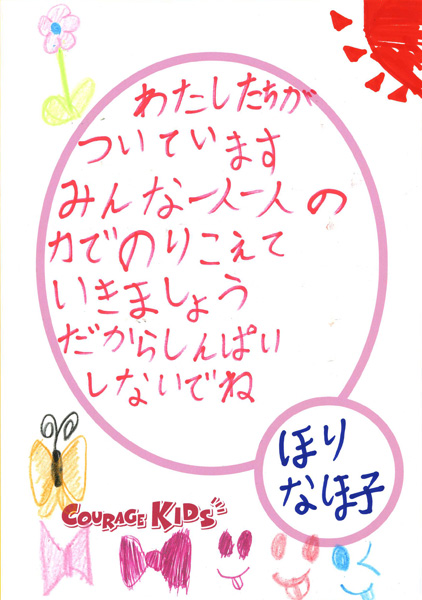 わたしたちが
ついています
みんな一人一人の
力でのりこえて
いきましょう
だからしんぱい
しないでね
ほり
なほ子
COURAGE KIDS